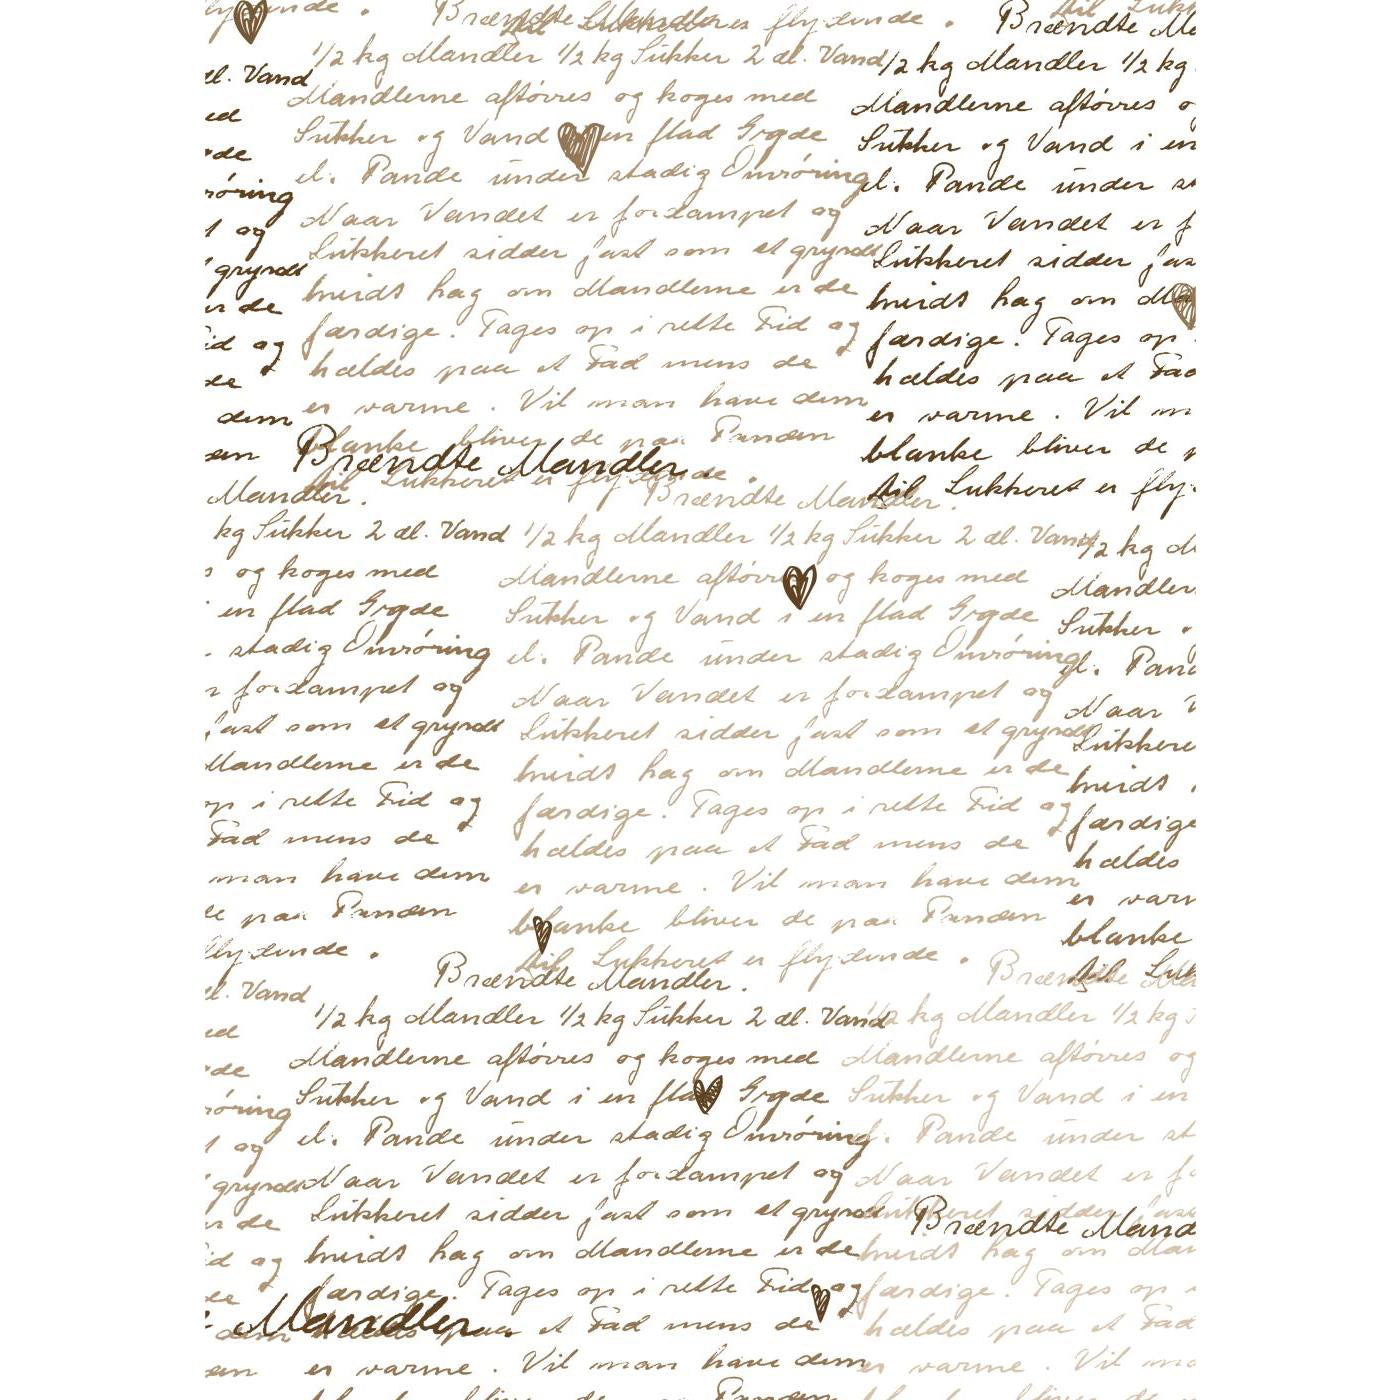 lydende .
Brændte
til Sukkeret er flydende .
1/2 kg Mandler 1/2 kg Sukker 2 dl. Vand
Mandlerne aftørres og koges med
Sukker og Vand en flad Gryde
el. Pande under stadig Omrøring
Naar Vandet er fordampet og
Sukkeret sidder fast som et grynet
hvidt Lag om Mandlerne er de
færdige. Tages op i rette Tid og
hældes paa et Fad mens de
er varme . Vil man have dem
blanke bliver de paa Panden
til Sukkeret er flydende .
til Sukk
Brændte Ma
1/2 kg Mandler 1/2 kg
Mandlerne aftørres o
Sukker og Vand i en
el. Pande under st
Naar Vandet er f
Sukkeret sidder fas
hvidt Lag om Ma
færdige. Tages op
hældes paa et Fad
er varme . Vil m
blanke bliver de p
til Sukkeret er fly
dl. Vand
ed
de
røring
t og
grynet
er de
id og
de
dem
en
Brændte Mandler.
Mandler.
kg Sukker 2 dl. Vand
s og koges med
en flad Gryde
stadig Omrøring
r fordampet og
fast som et grynet
Mandlerne er de
op i rette Tid og
Fad mens de
man have dem
de paa Panden
flydende .
Brændte Mandler.
1/2 kg Mandler 1/2 kg Sukker 2 dl. Vand
Mandlerne aftørres og koges med
Sukker og Vand i en flad Gryde
el. Pande under stadig Omrøring
Naar Vandet er fordampet og
Sukkeret sidder fast som et grynet
hvidt Lag om Mandlerne er de
færdige. Tages op i rette Tid og
hældes paa et Fad mens de
er varme . Vil man have dem
blanke bliver de paa Panden
til Sukkeret er flydende .
1/2 kg M
Mandler
Sukker o
el. Pand
Naar V
Sukkere
hvidt
færdige
hældes
er varm
blanke
til Suk
dl. Vand
ed
de
røring
t og
grynet
er de
id og
de
dem
en
Brændte Mandler.
1/2 kg Mandler 1/2 kg Sukker 2 dl. Vand
Mandlerne aftørres og koges med
Sukker og Vand i en flad Gryde
el. Pande under stadig Omrøring
Naar Vandet er fordampet og
Sukkeret sidder fast som et grynet
hvidt Lag om Mandlerne er de
færdige. Tages op i rette Tid og
hældes paa et Fad mens de
er varme . Vil man have dem
Mandler.
Brændte Ma
1/2 kg Mandler 1/2 kg
Mandlerne aftørres og
Sukker og Vand i en
el. Pande under st
Naar Vandet er fo
Sukkeret sidder fast
Brændte Mand
hvidt Lag om Man
færdige. Tages op i
hældes paa et Fad
er varme . Vil ma